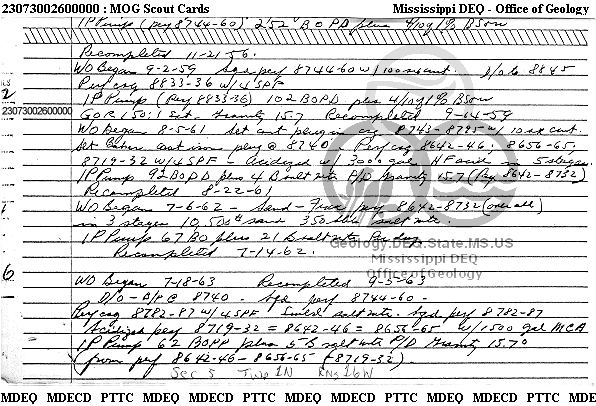 23073002600000 : MOG Scout Cards Mississippi DEQ - Office of Geology
IP Pump (Perf 8744-60) 252 BOPD plus 4/10 of 1% BS&W
Recompleted 11-21-56.
WO Began 9-2-59 Sqd perf 8744-60 w/100 sx cmt. D/O to 8845
Perf csg 8833-36 w/4SPF
IP Pump (Perf 8833-36) 102 BOPD plus 4/10 of 1% BS&W
23073002600000
GOR 150:1 Est. Gravity 15.7 Recompleted 9-14-59
WO Began 8-5-61 Set cmt plug in csg 8743-8785 w/10 sx cmt.
Set Baker cast iron plug @ 8740 Perf csg 8642-46, 8656-65,
8719-32 w/4SPF - Acidized w/ 3000 gal HF acid in 5 stages
IP Pump 92 BOPD plus 4 B salt wtr P/D Gravity 15.7 (Perf 8642-8732)
Recompleted 8-22-61
WO Began 7-6-62 - Sand-Frac perf 8642-8732 (overall)
in 3 stages 10,500# sand 350 bbls salt wtr.
IP Pump 67 BO plus 21 B salt wtr Per day
Geology.DEQ.State.MS.US
Recompleted 7-14-62.
Mississippi DEQ
Office of Geology
6
WO Began 7-18-63 Recompleted 9-5-63
D/O - 8740 - Sqd perf 8744-60 -
Perf csg 8782-87 w/4SPF Swbd salt wtr. Sqd perf 8782-87
Acidized perf 8719-32 = 8642-46 = 8656-65 w/1500 gal MCA
IP Pump 62 BOPD plus 5 B salt wtr P/D Gravity 15.7°
(from perf 8642-46 - 8656-65 - 8719-32).
Sec 5 Twp 1N Rng 16W
MDEQ MDECD PTTC MDEQ MDECD PTTC MDEQ MDECD PTTC MDE